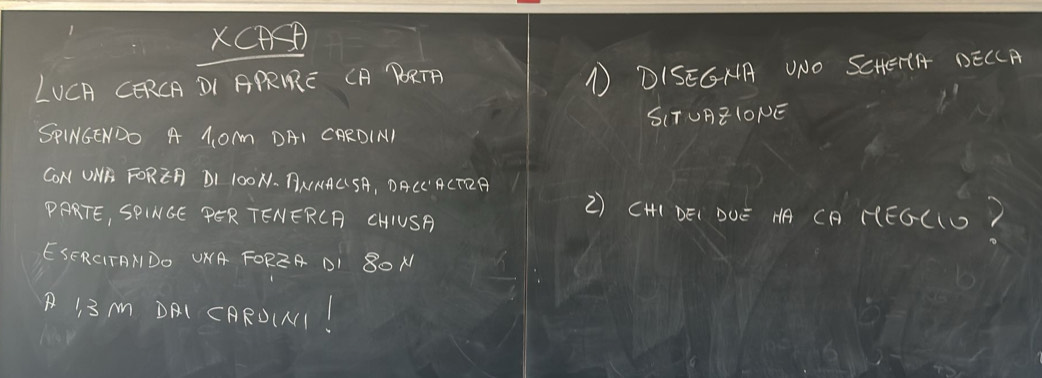 X CASA
LUCA CERCA DI APRIRE LA PORTA
SPINGENDO A 1,0m DAI CARDINI
CON UNA FORZA DI 100N. ANNALISA, DALL'ALTRA
PARTE, SPINGE PER TENERLA CHIUSA
ESERCITANDO UNA FORZA DI 80N
A 1,3 m DAI CARDINI!
1) DISEGNA UNO SCHEMA DELLA
SITUAZIONE
2) CHI DEI DUE HA LA MEGLIO?